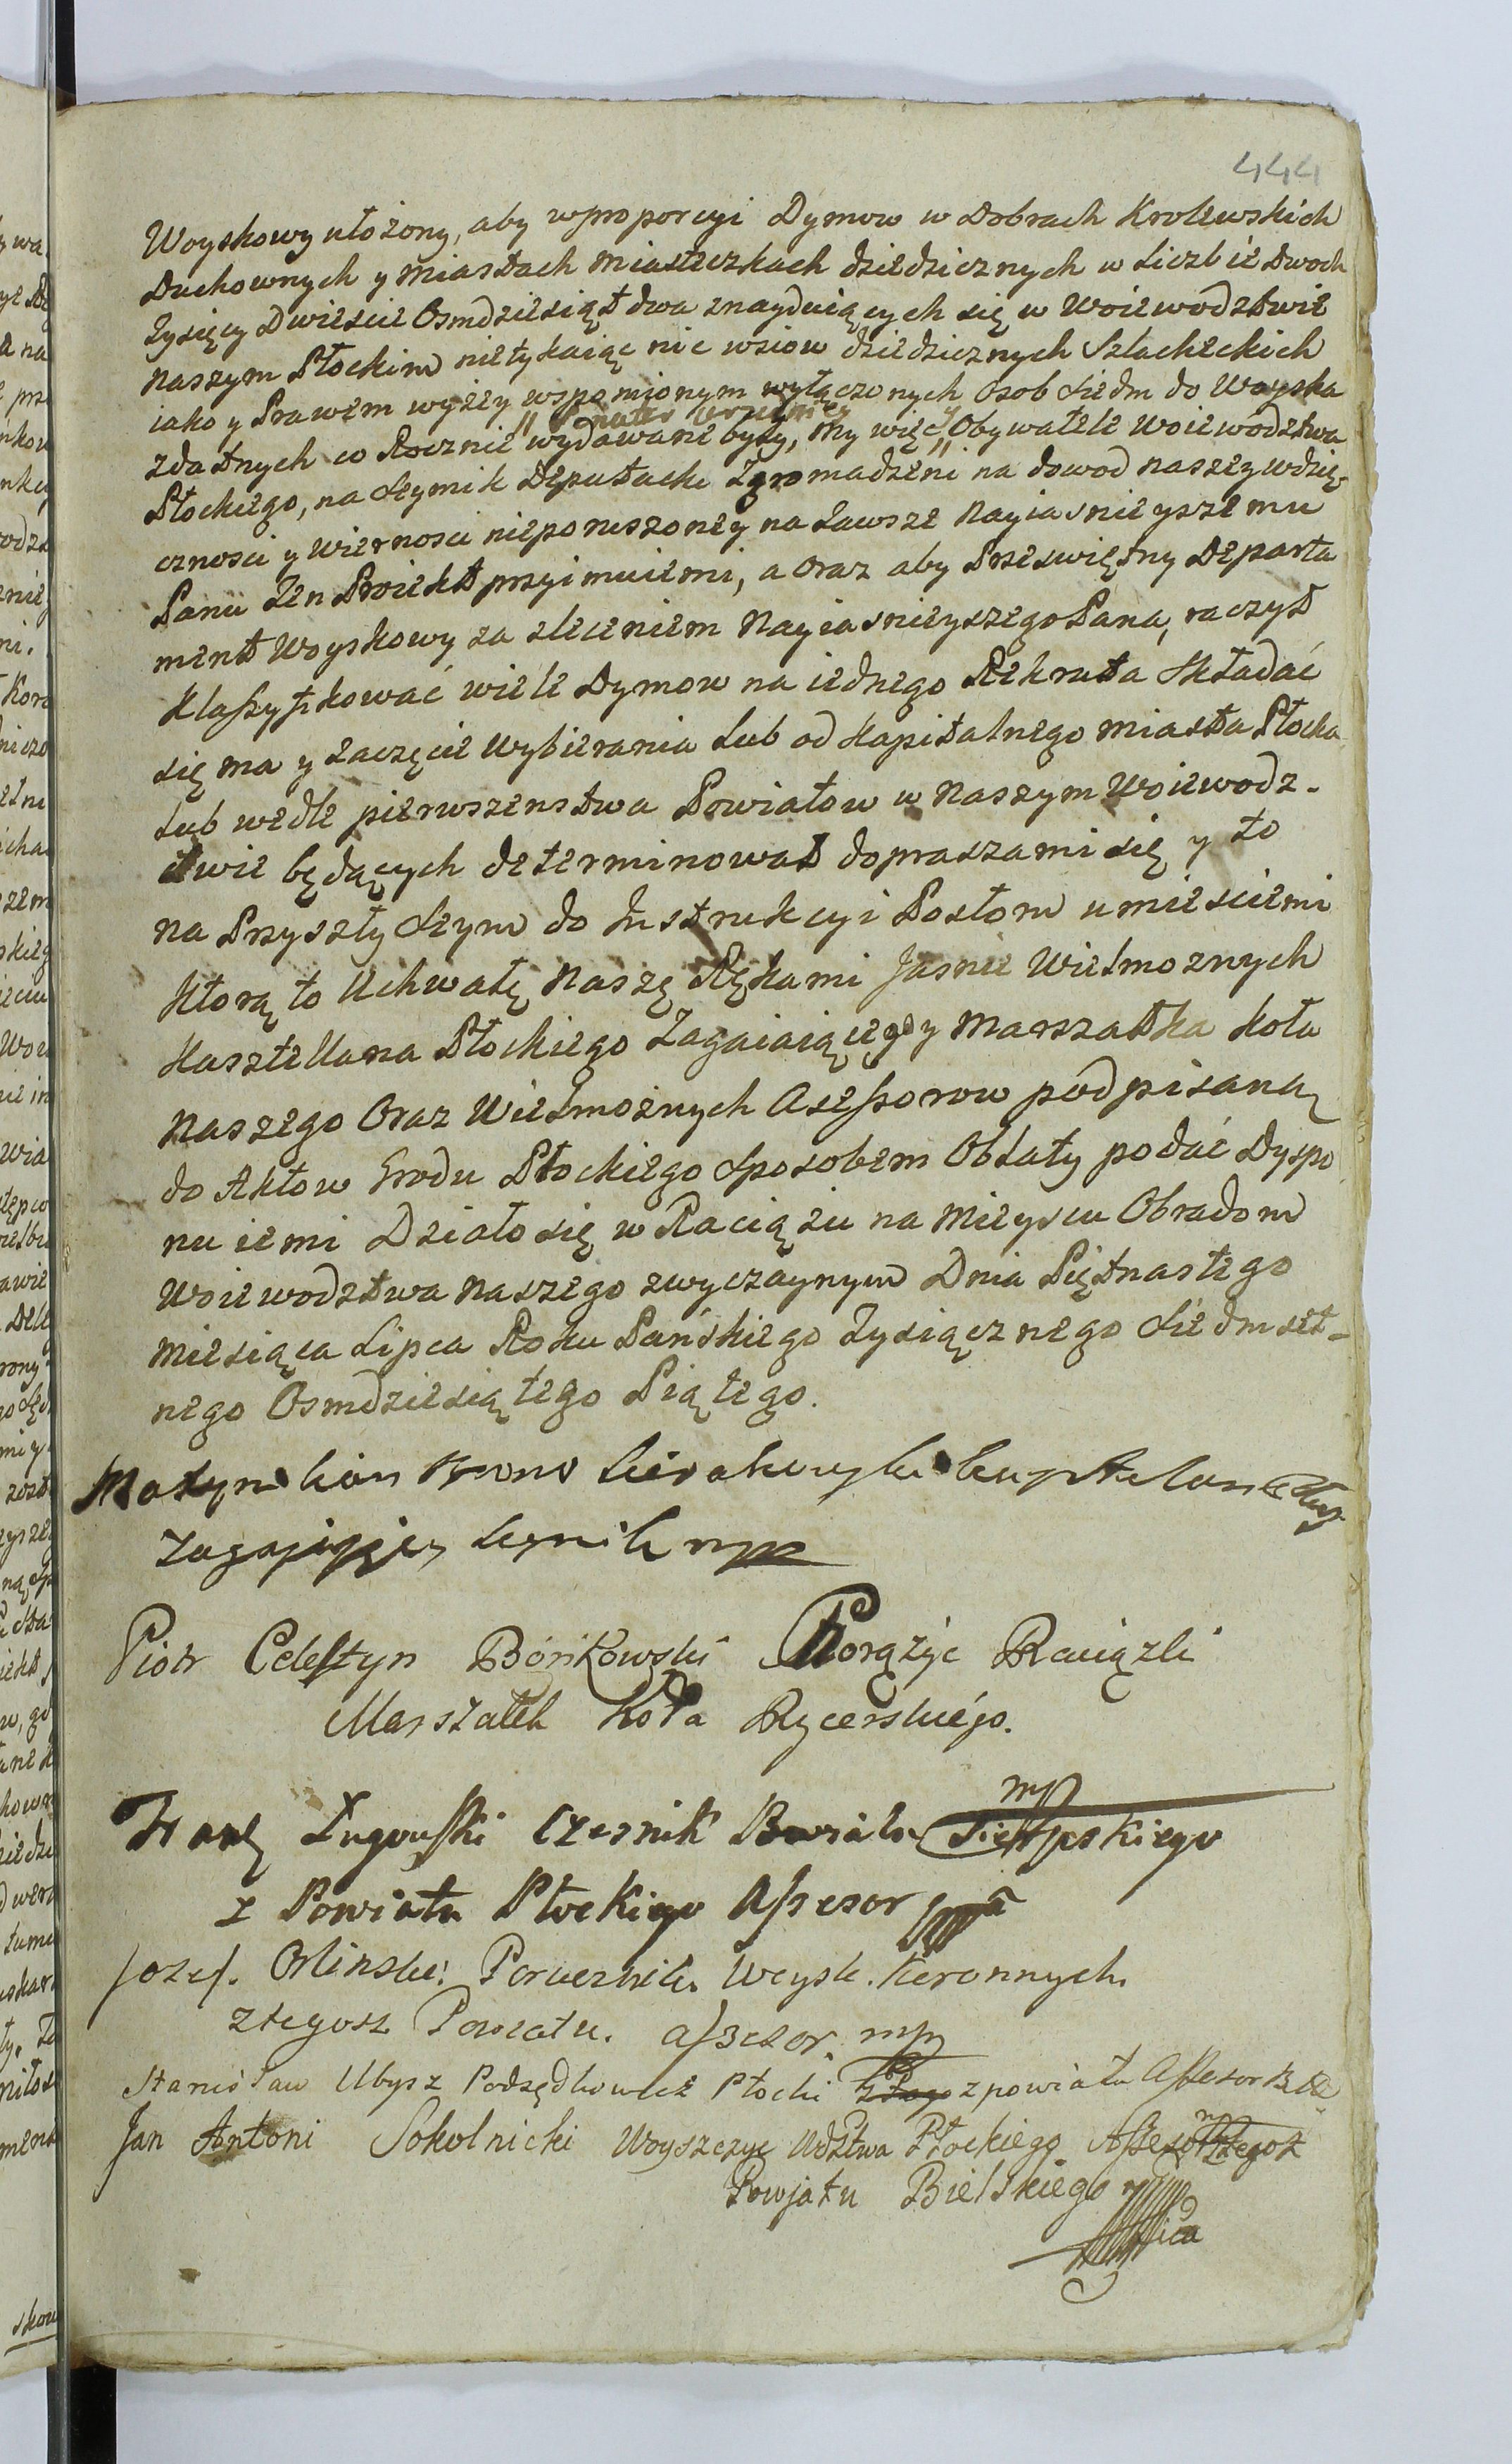 444
Woyskowy ułożony, aby w proporcyi Dymow w Dobrach Krolewskich
Duchownych y Miastach Miasteczkach dziedzicznych w Liczbie Dwoch
Tysięcy Dwieście Osmdziesiąt dwa znayduiących się w Woiewodztwie
Naszym Płockim nietykaiąc nic wsiow dziedzicznych Szlacheckich
iako y Prawem wyżey wspomionym wyłączonych Osob siedm do Woyska
zdatnych co Rocznie wydawane były, My więc Obywatele Woiewodztwa
Płockiego, na Seymik Deputacki Zgromadzeni na dowod naszey wdzię-
cznosci y wiernosci nieporuszoney na Zawsze Nayiasnieyszemu
Panu Ten Proiekt przyimuiemi, a oraz aby Przeświętny Departa
ment Woyskowy za zleceniem Nayiasnieyszego Pana, raczył
Klassyfikować wiele Dymow na iednego Rekruta Składać
się ma y zaczęcie Wybierania Lub od Kapitalnego miasta Płocka
Lub wedle pierwszenstwa Powiatow w Naszym Woiewodz-
twie będących determinował dopraszami się y to
na Przyszły Seym do Instrukcyi Posłom umieściemi
Ktorą to Uchwałę Naszę Rękami Jasnie Wielmoznych
Kasztellana Płockiego Zagaiaiącego y Marszałka Koła
Naszego Oraz Wielmożnych Asessorow podpisaną
do Aktow Grodu Płockiego Sposobem Oblaty podać Dyspo
nuiemi Działo się w Raciążu na Mieyscu Obradom
Woiewodztwa Naszego zwyczaynym Dnia Piętnastego
Miesiąca Lipca Roku Pańskiego Tysiącznego Siedmset-
nego Osmdziesiątego Piątego.
Zagajający Seymik mpp
Piotr Celestyn Bońkowski Chorążyc Raciązki
Marszałek Koła Rycerskiego.
Ługowski Czesnik Powiatu Sierpskiego mp
z Powiatu Płockiego Assesor
Jozef Orlinski Porucznik Woysk. Koronnych
z tegosz Powiatu. assesor. mp
Stanisław Ubysz Podsędkowicz Płocki z powiatu Assesor
Jan Antoni Sokolnicki Woyszczyc Wdztwa Płockiego Assesor z tegoż
Powjatu Bielskiego